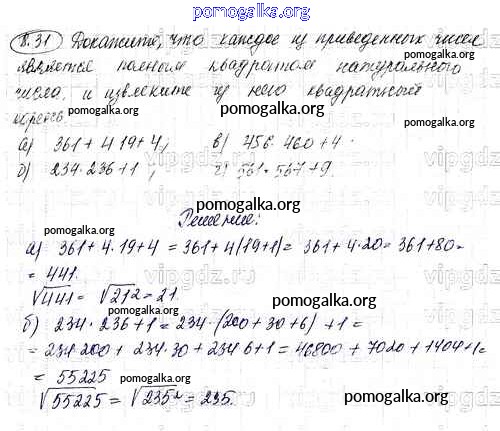 pomogalka.org
8.31 Докажите, что каждое из приведенных чисел
является полным квадратом натурального
числа, и извлеките из него квадратный
корень
pomogalka.org
а) 361+4·19+4; в) 456·460+4.
б) 234·236+1; г) 561·567+9.
pomogalka.org
Решение:
pomogalka.org
а) 361+4·19+4 = 361+4(19+1)= 361+4·20= 361+80=
= 441.
√441 = √21² = 21.
pomogalka.org
б) 234·236+1 = 234·(200+30+6)+1=
= 234·200+ 234·30+234·6+1= 46800+7020+1404+1=
= 55225
pomogalka.org
√55225 = √235² = 235.
pomogalka.org